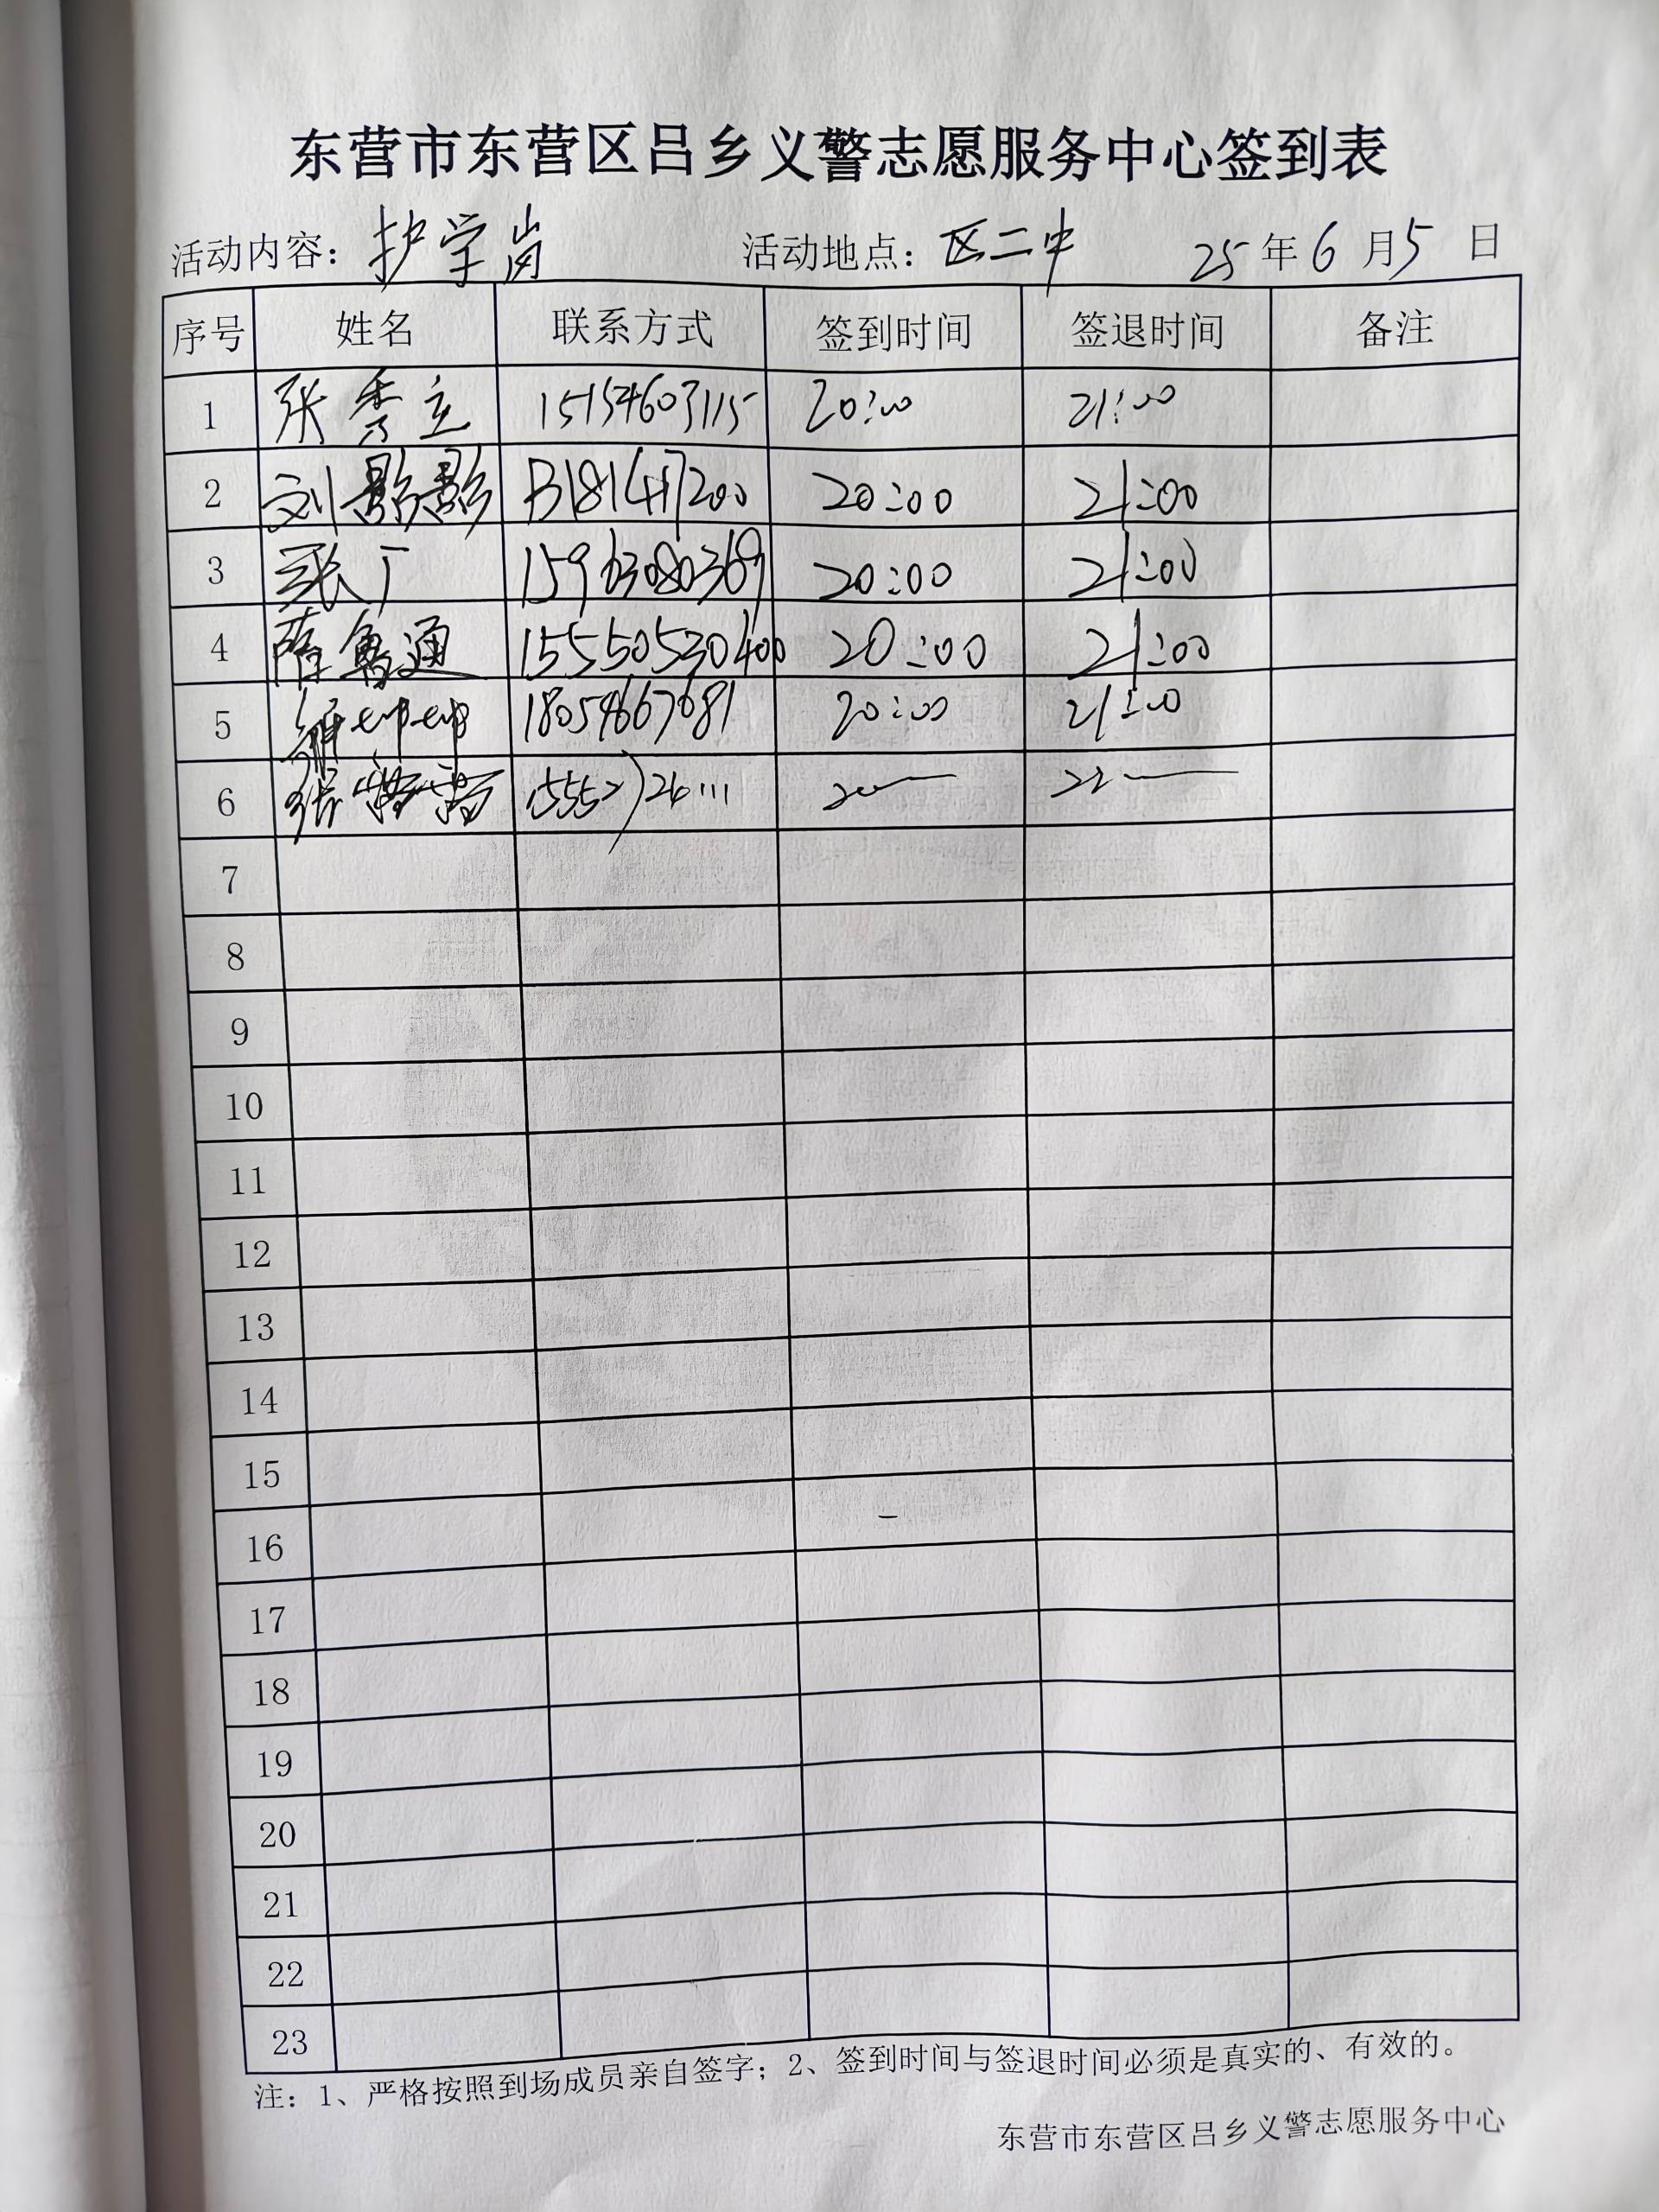 东营市东营区吕乡义警志愿服务中心签到表
活动内容：护学岗 活动地点：区二中 25年6月5日
序号 姓名 联系方式 签到时间 签退时间 备注
1 张秀立 15154603115 20:00 21:00
2 刘影影 13181417200 20:00 21:00
3 张广 15963080369 20:00 21:00
4 薛鲁通 15550530400 20:00 21:00
5 18054667681 20:00 21:00
6 张
7
8
9
10
11
12
13
14
15
16
17
18
19
20
21
22
23
注：1、严格按照到场成员亲自签字；2、签到时间与签退时间必须是真实的、有效的。
东营市东营区吕乡义警志愿服务中心